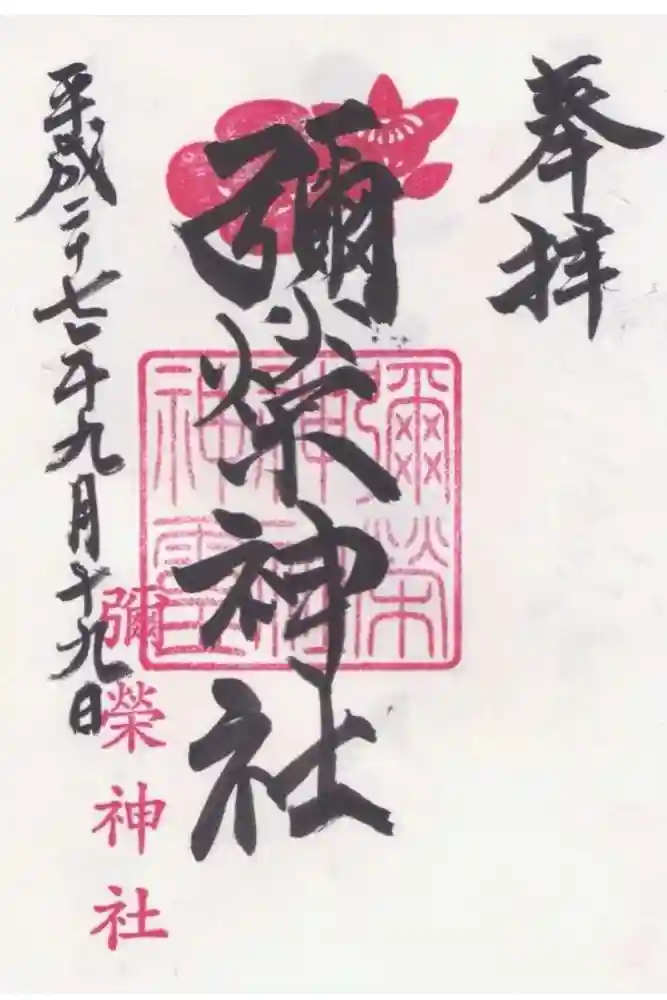 奉拝
彌榮神社
平成二十七年九月十九日
彌榮神社